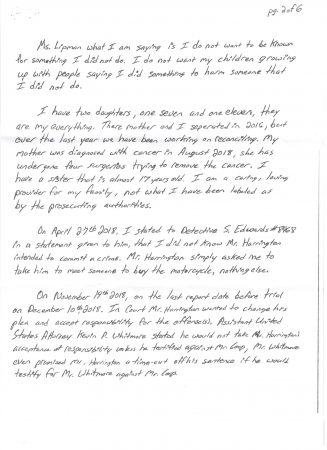 pg. 2 of 6
Ms. Lipman what I am saying is I do not want to be known
for something I did not do. I do not want my children growing
up with people saying I did something to harm someone that
I did not do.
I have two daughters, one seven and one eleven, they
are my everything. There mother and I seperated in 2016, but
over the last year we have been working on reconciling. My
mother was diagnosed with cancer in August 2018, she has
undergone four surgeries trying to remove the cancer. I
have a sister that is almost 17 years old. I am a caring, loving
provider for my family, not what I have been labeled as
by the prosecuting authorities.
On April 27th 2018, I stated to Detective S. Edwards #7968
in a statement given to him, that I did not know Mr. Harrington
intended to commit a crime. Mr. Harrington simply asked me to
take him to meet someone to buy the motorcycle, nothing else.
On November 19th 2018, on the last report date before trial
on December 10th 2018. In Court Mr. Harrington wanted to change his
plea and accept responsibility for the offense(s). Assistant United
States Attorney Kevin P. Whitmore stated he would not take Mr. Harrington's
acceptance of responsibility unless he testified against Mr. Camp, Mr. Whitmore
even promised Mr. Harrington a time-cut off his sentence if he would
testify for Mr. Whitmore against Mr. Camp.